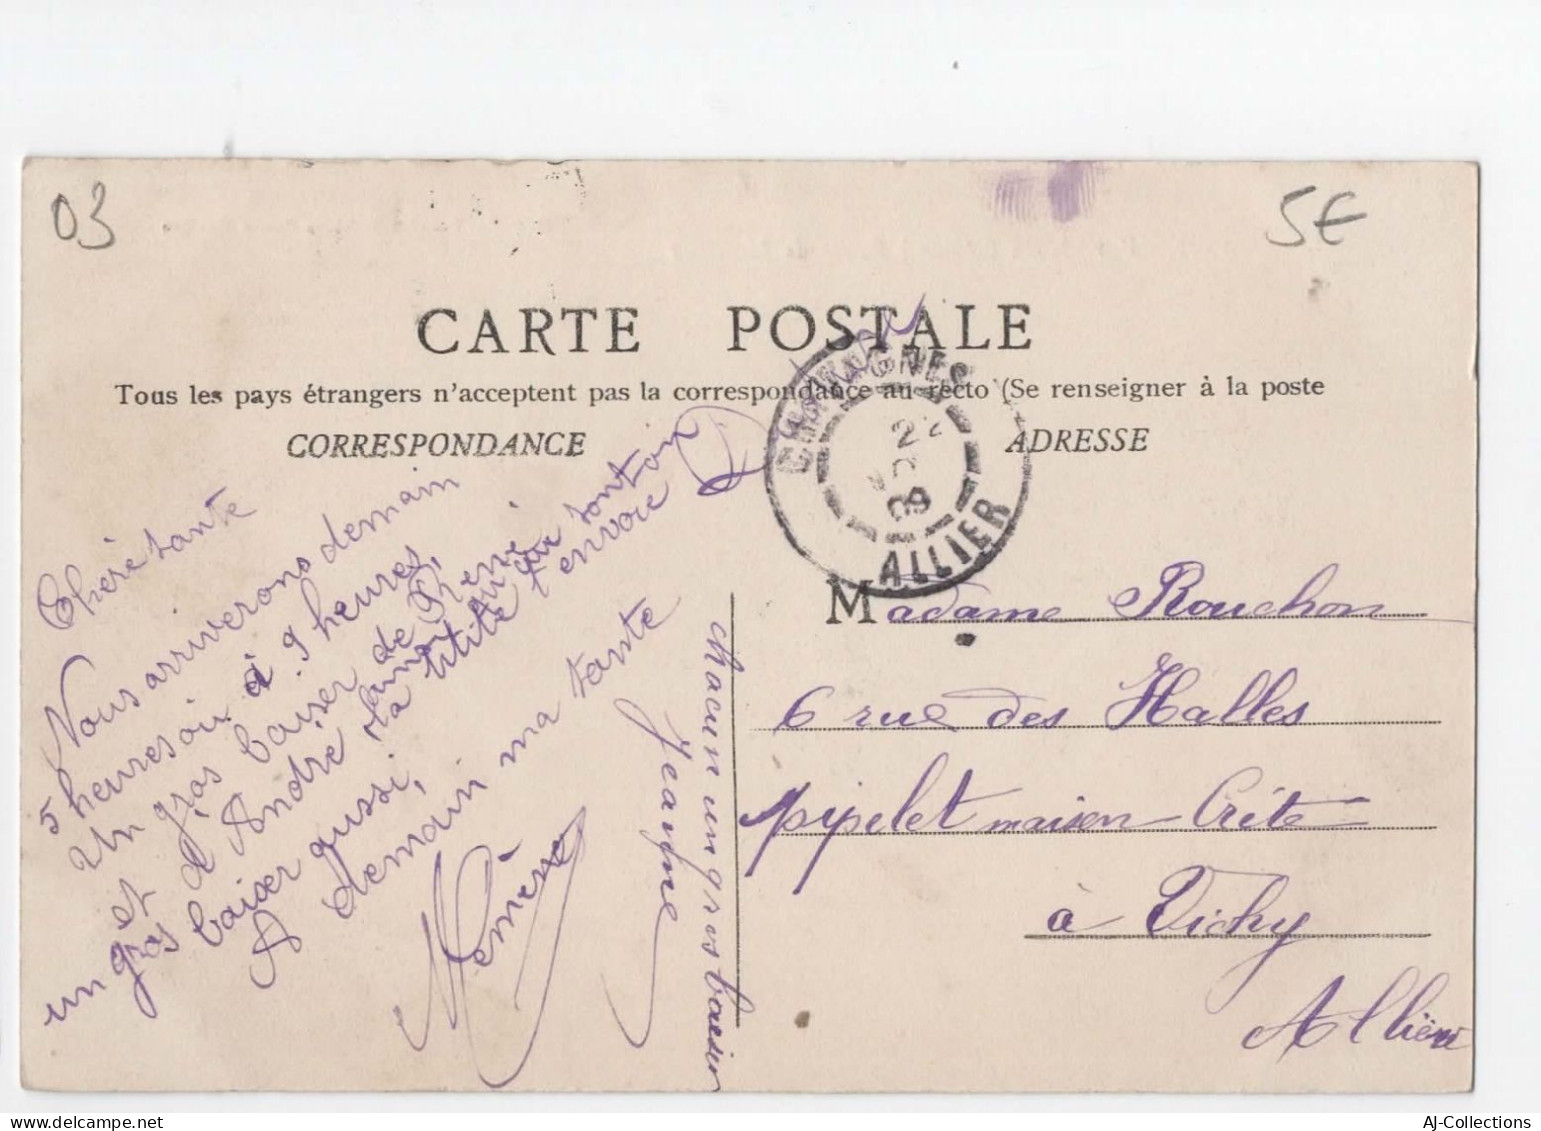 03
5€
CARTE POSTALE
Tous les pays étrangers n'acceptent pas la correspondance au recto (Se renseigner à la poste
CORRESPONDANCE
ADRESSE
ALLIER
22
09
Chère tante
Nous arriverons demain
5 heures ou à 9 heures
Un gros baiser de Pierre
et d'André
la titite qui t'envoie
un gros baiser aussi,
A demain ma tante
Némène
Jeanne
chacun un gros baiser
Madame Rouchon
6 rue des Halles
pipelet maison Crête
à Vichy
Allier
AJ-Collections